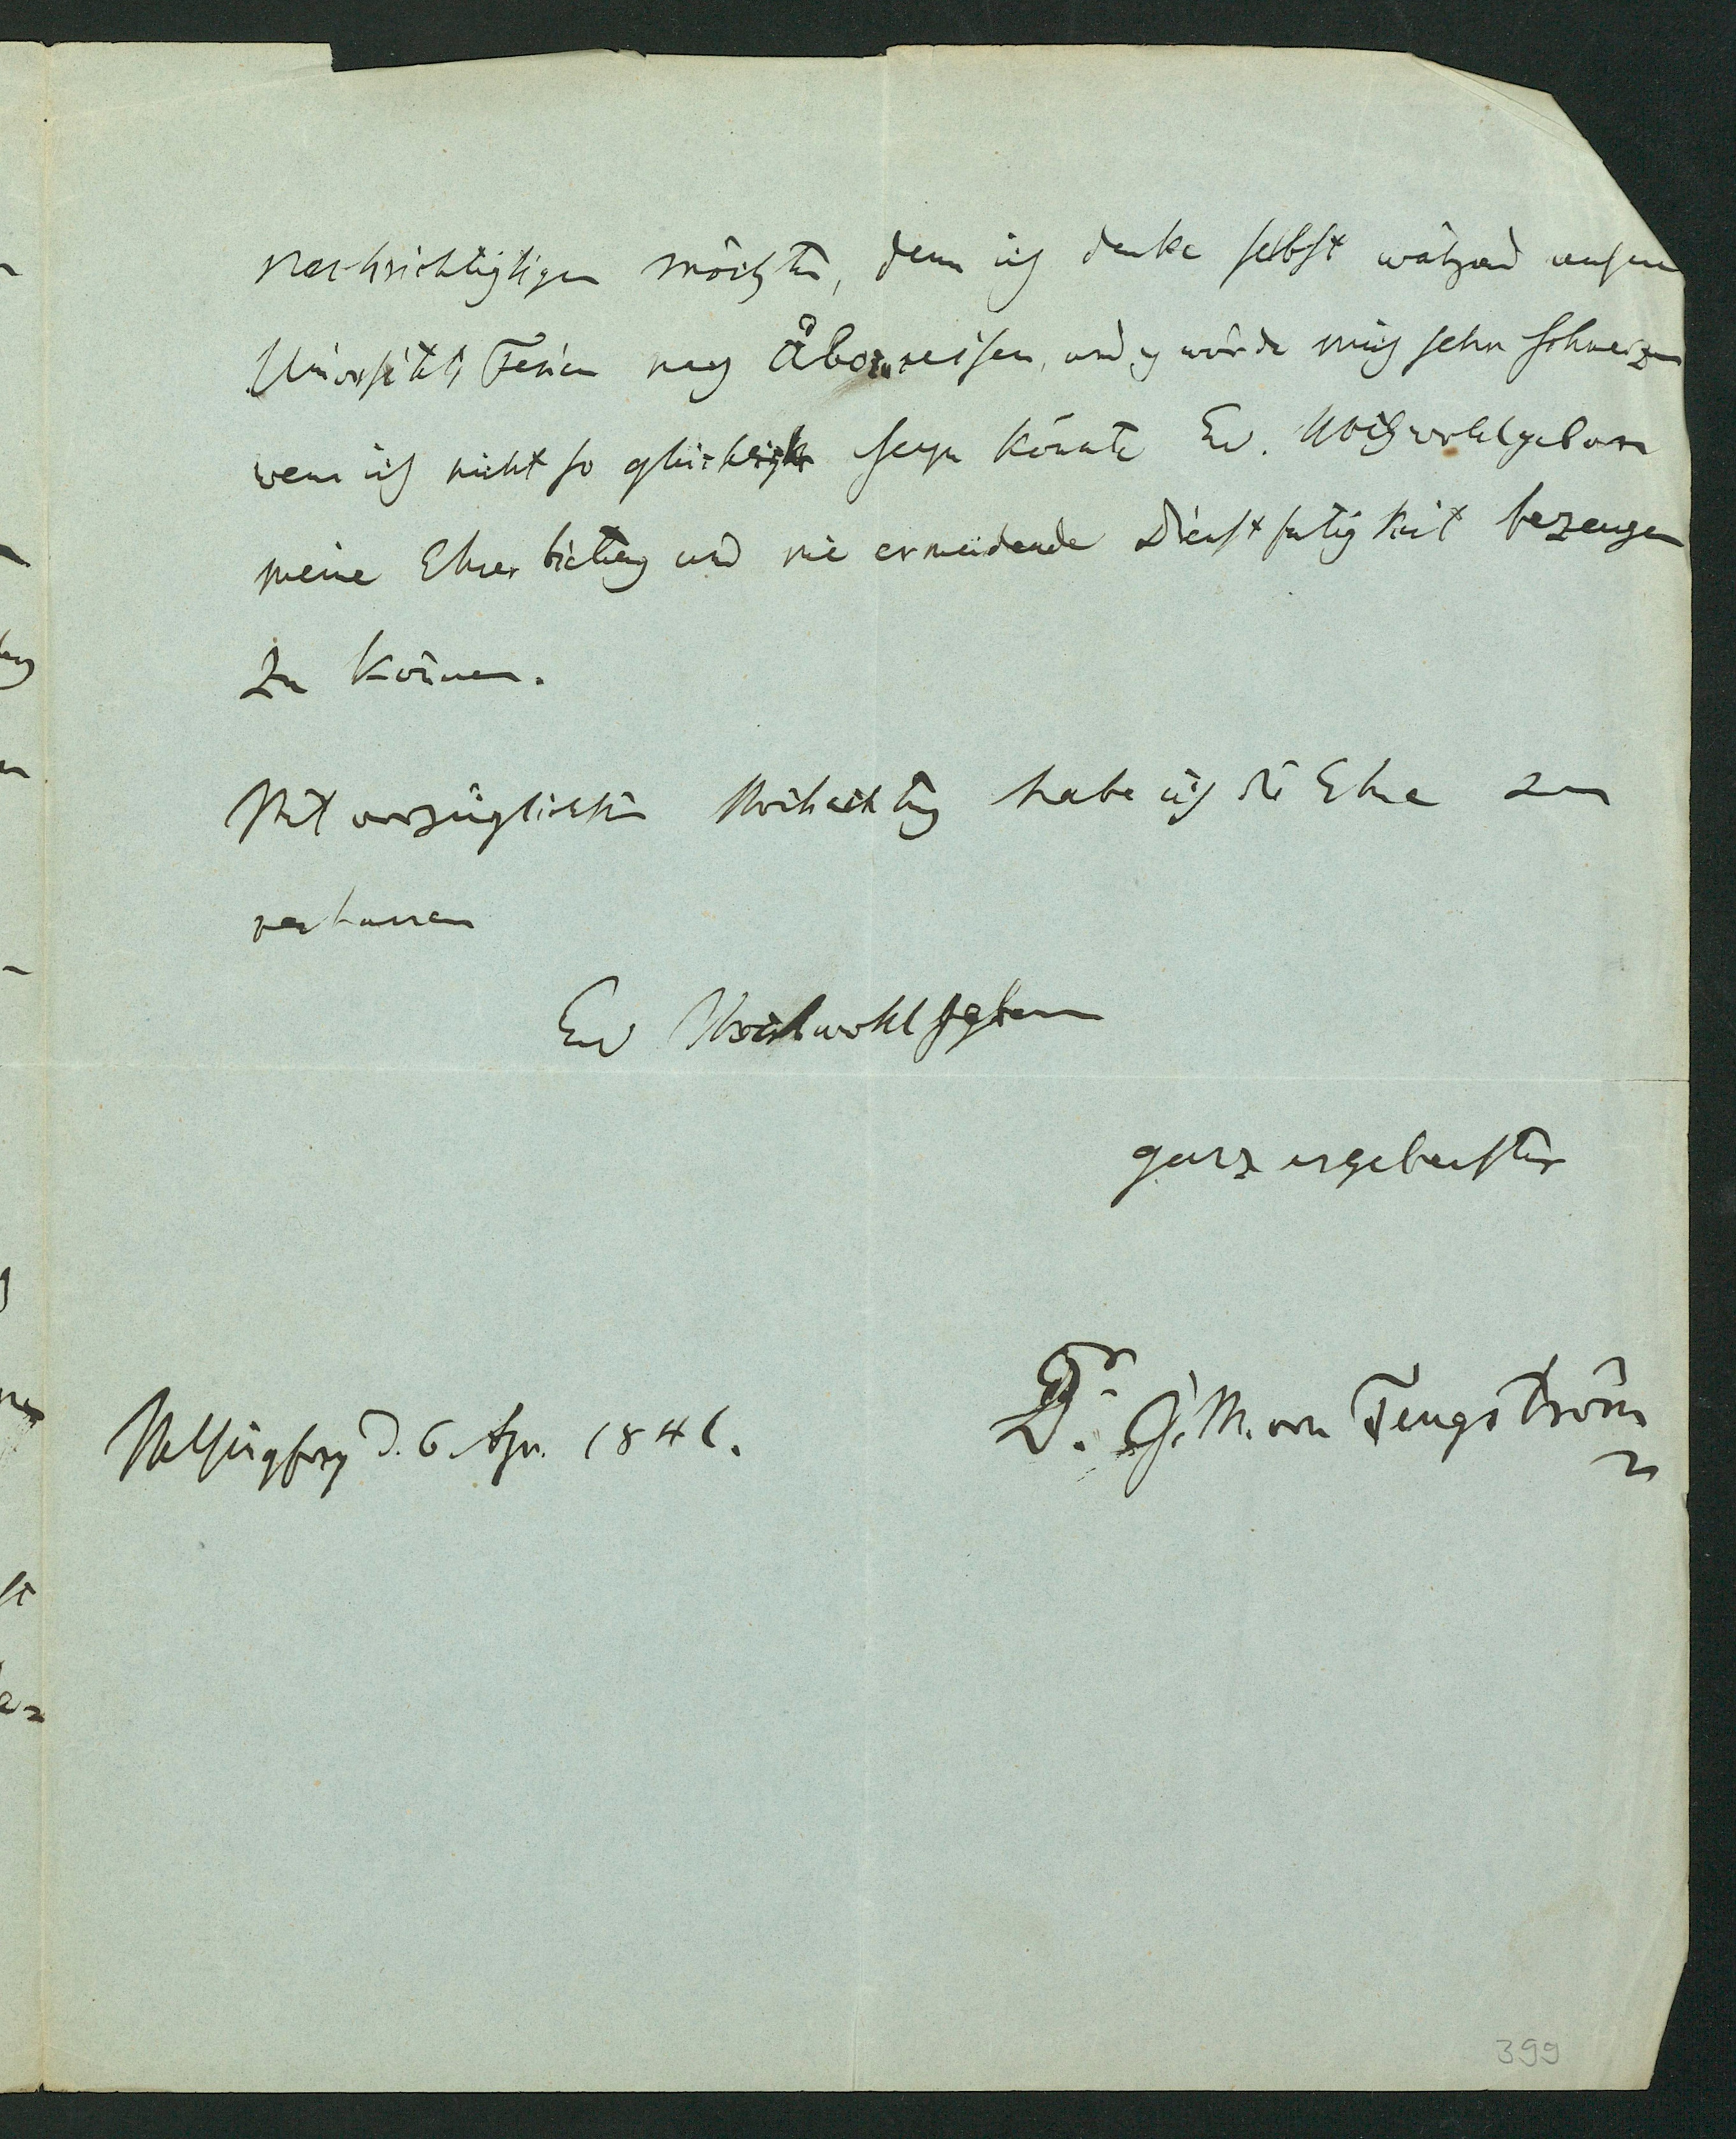 nachrichtigtigen möchten, denn ich denke selbst während unsere
Universitäts Ferien nach Åbo zu reisen, und es würde mich sehr schmerzen
wenn ich nicht so glücklich seyn könnte Ew. Hochwohlgeboren
meine Ehrerbietung und nie ermüdende Dienstfertigkeit bezeugen
zu können.
Mit vorzüglichster Hochachtung habe ich die Ehre zu
verharren
Ew Hochwohlgeboren
ganz ergebenster
Dr. J. M. von Tengström
Helsingfors d. 6 Apr. 1846.
399